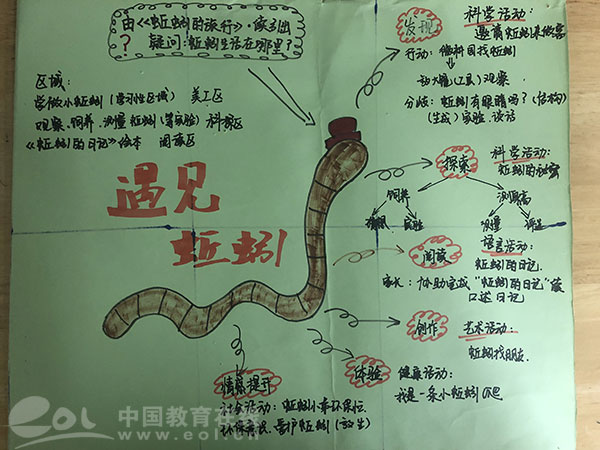 由《蚯蚓的旅行》·做引出
疑问:蚯蚓生活在哪里?
区域:
学做小蚯蚓(学习性区域) 美工区
观察、饲养、测量蚯蚓(等实验) 科察区
《蚯蚓的日记》绘本 阅读区
遇见
蚯蚓
发现
科学活动:
邀请蚯蚓来做客
行动:做种园找蚯蚓
动水(工具)观察
分歧:蚯蚓有眼睛吗?(结构)
(生成)实验、谈话
探索
科学活动:
蚯蚓的秘密
饲养
测量
阅读
语言活动:
蚯蚓的日记.
家长:协助完成"蚯蚓的日记"
口述日记
创作
艺术活动:
蚯蚓找朋友.
体验
健康活动:
我是一条小蚯蚓 爬
情感提升
社会活动: 蚯蚓小
环保 爱护蚯蚓(放生)
eol 中国教育在线
www.eol.cn